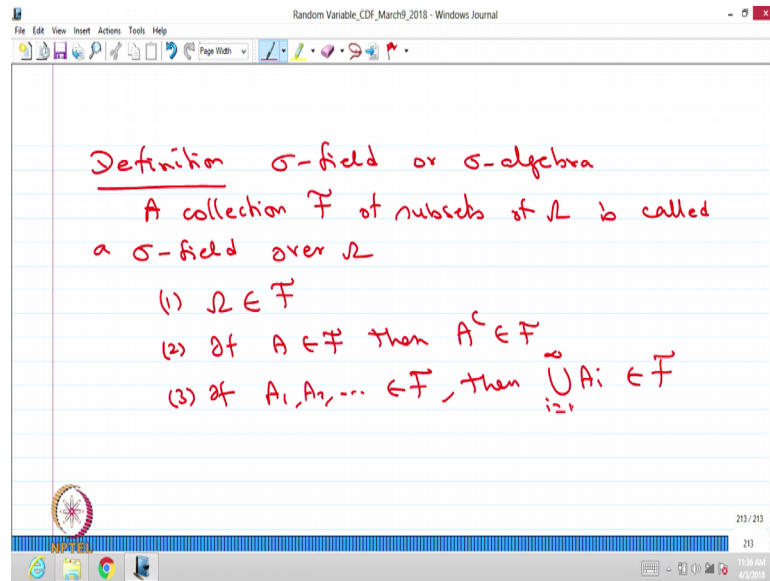 Random Variable_CDF_March9_2018 - Windows Journal
File Edit View Insert Actions Tools Help
Page Width
Definition σ-field or σ-algebra
A collection F of subsets of Ω is called
a σ-field over Ω
(1) Ω ∈ F
(2) If A ∈ F then A^c ∈ F
(3) If A₁, A₂, ... ∈ F, then ∞⋃i=1 Ai ∈ F
213 / 213
NPTEL
213
11:36 AM
4/3/2018